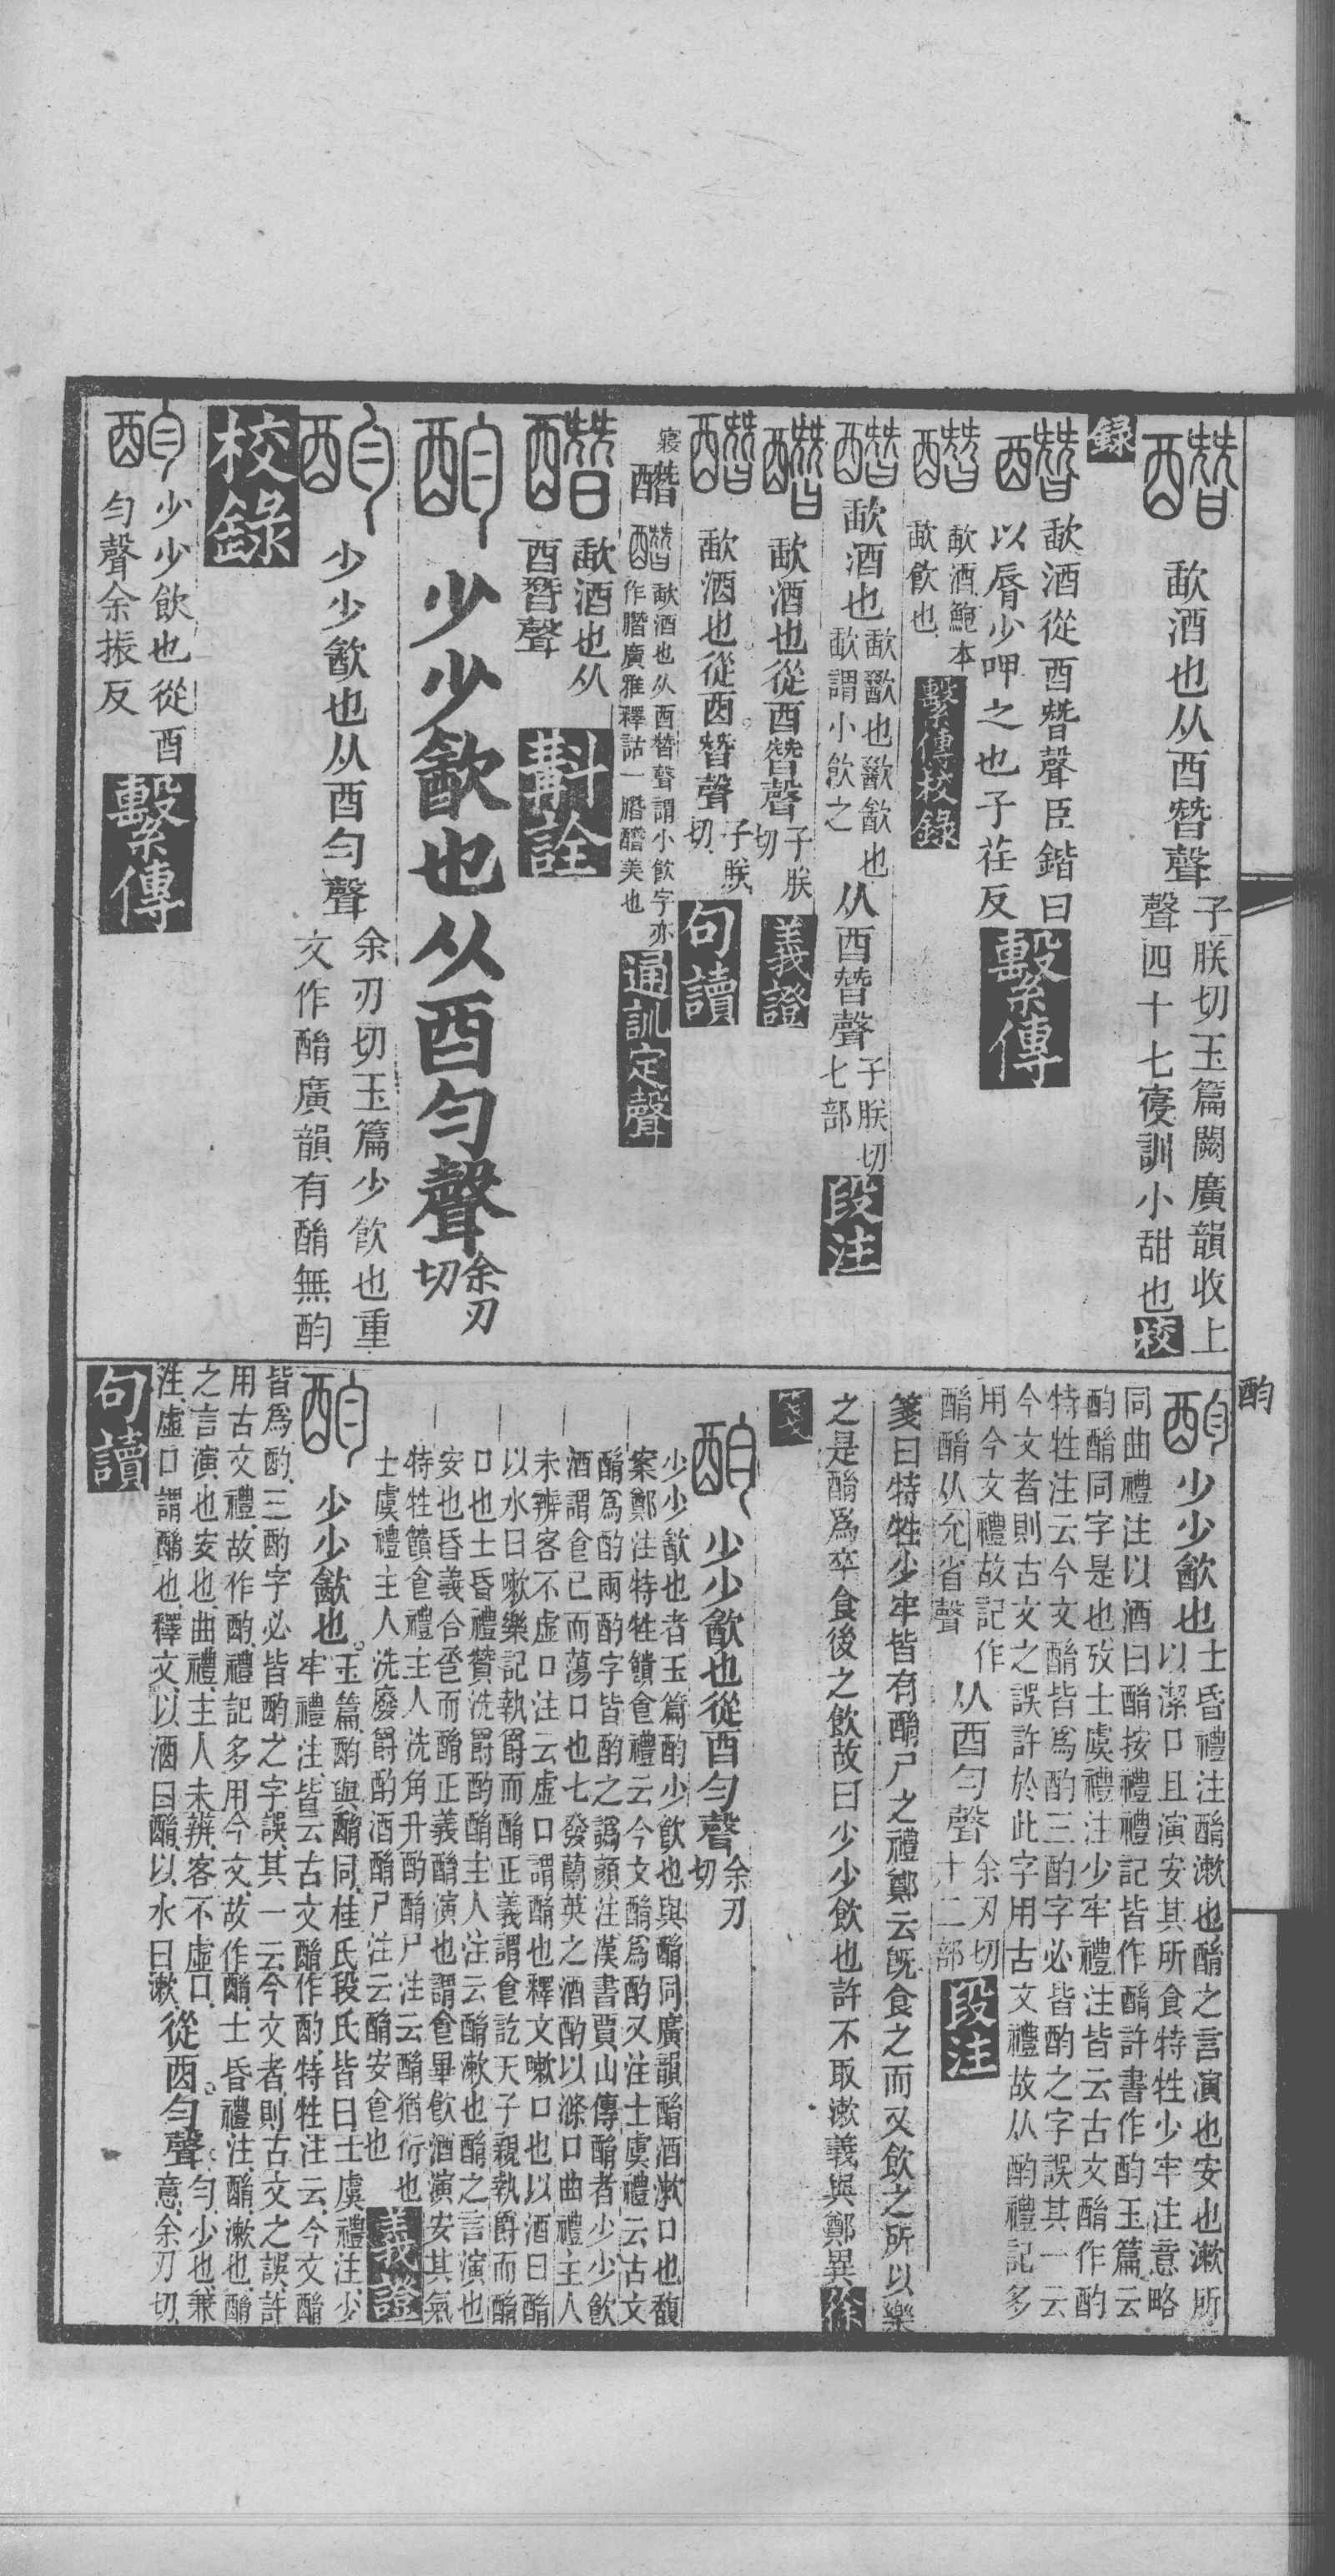 歃酒也从酉朁聲
子朕切玉篇闕廣韻收上
聲四十七寑訓小甜也校
録
歃酒從酉朁聲臣鍇曰
以脣少呷之也子荏反
繫傳
歃酒鮑本
歃飲也
繫傳校錄
歃酒也
歃歠也歠歙也
歃謂小飮之
从酉朁聲
子朕切
七部
段注
歃酒也從酉朁聲
子朕
切
義證
歃酒也從酉朁聲
子朕
切
句讀
醋
歃酒也从酉朁聲謂小飮字亦
作䐶廣雅釋詁一䐶醋美也
通訓定聲
歃酒也从
酉朁聲
斠詮
少少㱃也从酉勻聲
余刃
切
少少㱃也从酉勻聲
余刃切玉篇少飮也重
文作酳廣韻有酳無酌
校錄
少少飮也從酉
勻聲余振反
繫傳
酌
少少㱃也
士昏禮注酳漱也酳之言演也安也漱所
以潔口且演安其所食特牲少牢注意略
同曲禮注以酒曰酳按禮禮記皆作酳許書作酌玉篇云
酌酳同字是也攷士虞禮注少牢禮注皆云古文酳作酌
特牲注云今文酳皆爲酌三酌字必皆酌之字誤其一云
今文者則古文之誤許於此字用古文禮故从酌禮記多
用今文禮故記作
酳酳从允省聲
从酉勻聲
余刃切
十二部
段注
箋曰特牲少牢皆有酳尸之禮鄭云旣食之而又飮之所以樂
之是酳爲卒食後之飮故曰少少飮也許不取漱義與鄭異徐
箋
少少㱃也從酉勻聲
余刃
切
少少㱃也者玉篇酌少飮也與酳同廣韻酳酒漱口也馥
案鄭注特牲饋食禮云今文酳爲酌又注士虞禮云古文
酳爲酌兩酌字皆酌之譌顏注漢書賈山傳酳者少少飮
酒謂食已而蕩口也七發蘭英之酒酌以滌口曲禮主人
未辨客不虛口注云虛口謂酳也釋文嗽口也以酒曰酳
以水曰嗽樂記執爵而酳正義謂食訖天子親執爵而酳
口也士昏禮贊洗爵酌酳主人注云酳漱也酳之言演也
安也昏義合巹而酳正義酳演也謂食畢飮酒演安其氣
特牲饋食禮主人洗角升酌酳尸注云酳猶衍也
士虞禮主人洗廢爵酌酒酳尸注云酳安食也
義證
少少㱃也
玉篇酌與酳同桂氏段氏皆曰士虞禮注少
牢禮注皆云古文酳作酌特牲注云今文酳
皆爲酌三酌字必皆酌之字誤其一云今文者則古文之誤許
用古文禮故作酌禮記多用今文故作酳士昏禮注酳漱也酳
之言演也安也曲禮主人未辨客不虛口
注虛口謂酳也釋文以酒曰酳以水曰漱
從酉勻聲
勻少也兼
意余刃切
句讀